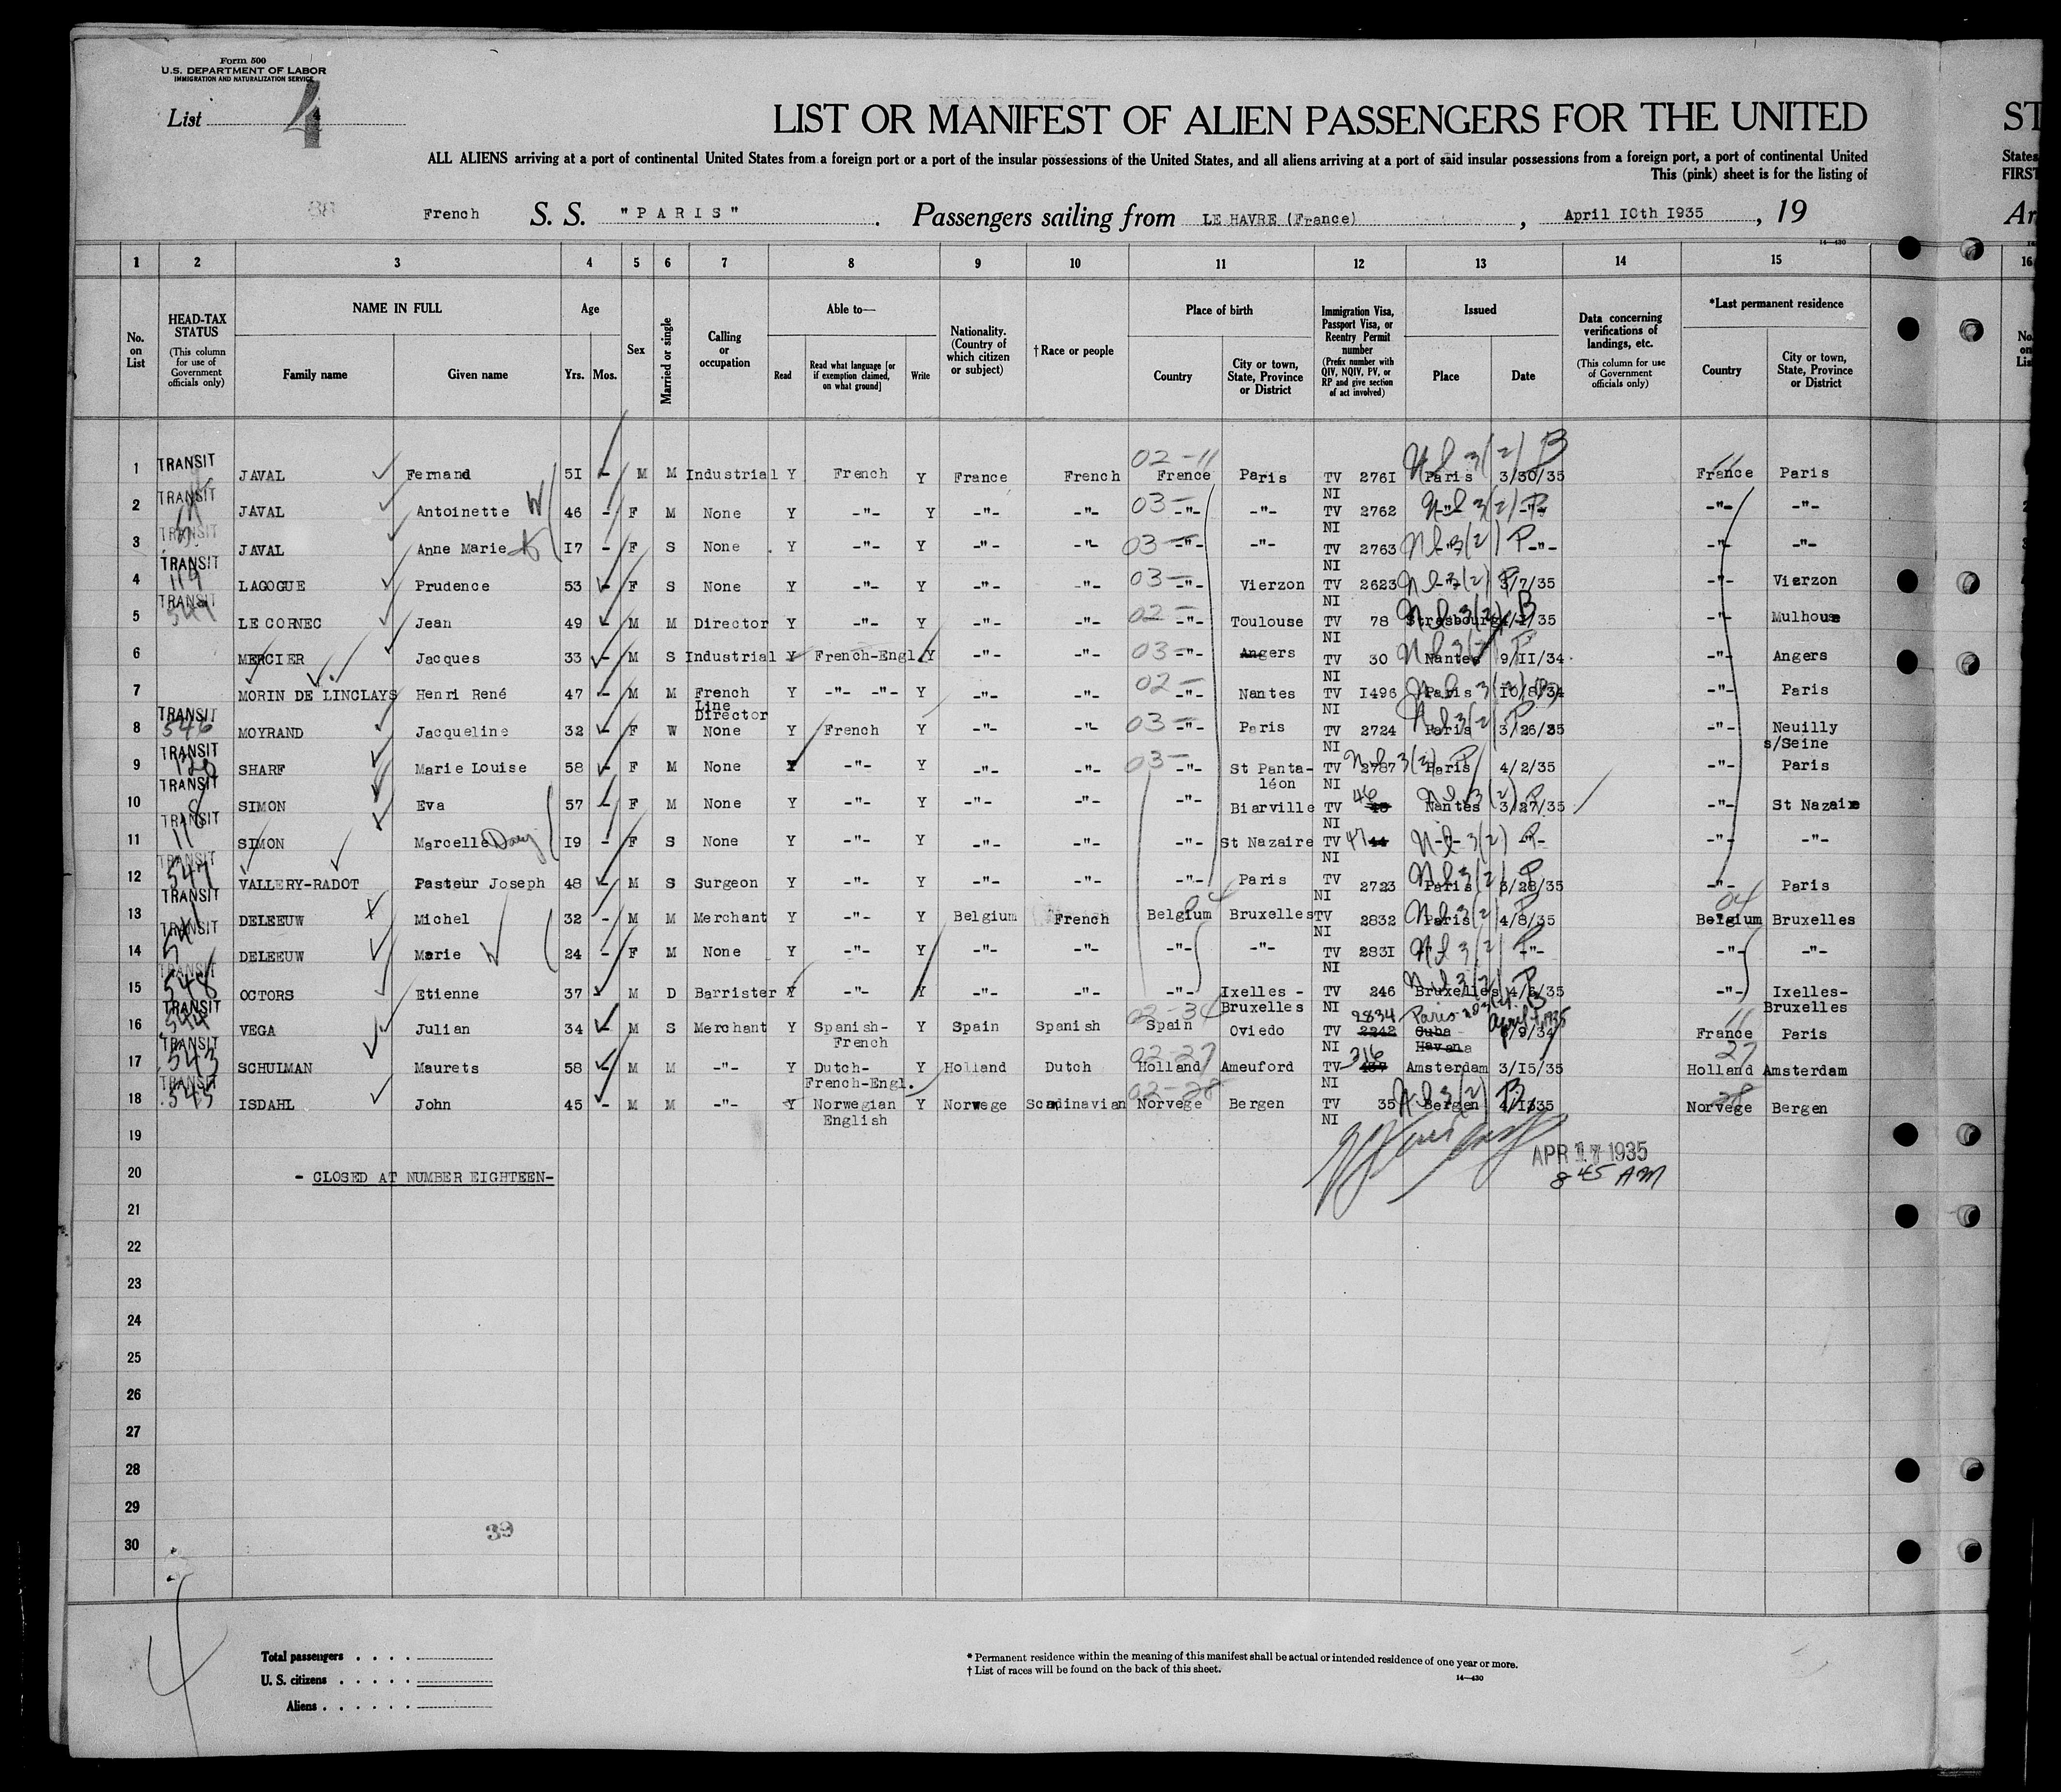 Form 500
U.S. DEPARTMENT OF LABOR
IMMIGRATION AND NATURALIZATION SERVICE
List 4
LIST OR MANIFEST OF ALIEN PASSENGERS FOR THE UNITED ST
ALL ALIENS arriving at a port of continental United States from a foreign port or a port of the insular possessions of the United States, and all aliens arriving at a port of said insular possessions from a foreign port, a port of continental United States
This (pink) sheet is for the listing of FIRST
38 French S. S. "PARIS" . Passengers sailing from LE HAVRE (France) , April 10th 1935 , 19 Ar
14—430
1 2 3 4 5 6 7 8 9 10 11 12 13 14 15 16
No. on List
HEAD-TAX STATUS (This column for use of Government officials only)
NAME IN FULL Family name Given name
Age Yrs. Mos.
Sex
Married or single
Calling or occupation
Able to— Read Read what language [or if exemption claimed, on what ground] Write
Nationality. (Country of which citizen or subject)
†Race or people
Place of birth Country City or town, State, Province or District
Immigration Visa, Passport Visa, or Reentry Permit number (Prefix number with QIV, NQIV, PV, or RP and give section of act involved)
Issued Place Date
Data concerning verifications of landings, etc. (This column for use of Government officials only)
*Last permanent residence Country City or town, State, Province or District
1 TRANSIT JAVAL Fernand 51 - M M Industrial Y French Y France French 02-11 France Paris TV 2761 NI Paris 3/30/35 France Paris
2 TRANSIT JAVAL Antoinette 46 - F M None Y -"- Y -"- -"- 03- -"- -"- TV 2762 NI -"- 3(2) -"- -"- -"-
3 TRANSIT JAVAL Anne Marie 17 - F S None Y -"- Y -"- -"- 03- -"- -"- TV 2763 NI -"- 3(2) -"- -"- -"-
4 TRANSIT 119 LAGOGUE Prudence 53 - F S None Y -"- Y -"- -"- 03- -"- Vierzon TV 2623 NI -"- 3(2) 3/7/35 -"- Vierzon
5 TRANSIT LE CORNEC Jean 49 - M M Director Y -"- Y -"- -"- 02- -"- Toulouse TV 78 NI Strasbourg 3(2) -"- Mulhouse
6 MERCIER Jacques 33 - M S Industrial Y French-Engl. Y -"- -"- 03- -"- Angers TV 30 NI Nantes 9/11/34 -"- Angers
7 MORIN DE LINCLAYS Henri René 47 - M M French Line Director Y -"- -"- Y -"- -"- 02- -"- Nantes TV 1496 NI Paris 10/8/34 -"- Paris
8 TRANSIT 546 MOYRAND Jacqueline 32 - F W None Y French Y -"- -"- 03- -"- Paris TV 2724 NI Paris 3(2) 3/26/35 -"- Neuilly s/Seine
9 TRANSIT 120 SHARF Marie Louise 58 - F M None Y -"- Y -"- -"- 03- -"- St Panta-léon TV 2787 NI Paris 3(2) 4/2/35 -"- Paris
10 TRANSIT SIMON Eva 57 - F M None Y -"- Y -"- -"- -"- Biarville TV 46 NI Nantes 3(2) 3/27/35 -"- St Nazaire
11 TRANSIT 118 SIMON Marcelle 19 - F S None Y -"- Y -"- -"- -"- St Nazaire TV 47 NI -"- 3(2) -"- -"- -"-
12 TRANSIT 547 VALLERY-RADOT Pasteur Joseph 48 - M S Surgeon Y -"- Y -"- -"- -"- Paris TV 2723 NI Paris 3(2) 3/28/35 -"- Paris
13 TRANSIT DELEEUW Michel 32 - M M Merchant Y -"- Y Belgium French 04 Belgium Bruxelles TV 2832 NI Paris 3(2) 4/8/35 04 Belgium Bruxelles
14 TRANSIT DELEEUW Marie 24 - F M None Y -"- Y -"- -"- -"- -"- TV 2831 NI -"- 3(2) -"- -"- -"-
15 TRANSIT 548 OCTORS Etienne 37 M D Barrister Y -"- Y -"- -"- -"- Ixelles - Bruxelles TV 246 NI Bruxelles 3(2) 4/6/35 -"- Ixelles-Bruxelles
16 TRANSIT 544 VEGA Julian 34 - M S Merchant Y Spanish-French Y Spain Spanish 02-34 Spain Oviedo TV 2834 2242 NI Paris Cuba Havana April 1935 /9/34 11 France Paris
17 TRANSIT 543 SCHUIMAN Maurets 58 - M M -"- Y Dutch-French-Engl. Y Holland Dutch 02-27 Holland Ameuford TV 316 NI Amsterdam 3/15/35 27 Holland Amsterdam
18 TRANSIT 545 ISDAHL John 45 - M M -"- Y Norwegian English Y Norwege Scandinavian 02-28 Norvege Bergen TV 35 NI Bergen 3(2) 28 Norvege Bergen
19
APR 17 1935
8 45 AM
20 - CLOSED AT NUMBER EIGHTEEN-
21
22
23
24
25
26
27
28
29
39
30
4
Total passengers . . . .
U. S. citizens . . . . .
Aliens . . . . . .
* Permanent residence within the meaning of this manifest shall be actual or intended residence of one year or more.
† List of races will be found on the back of this sheet.
14—430